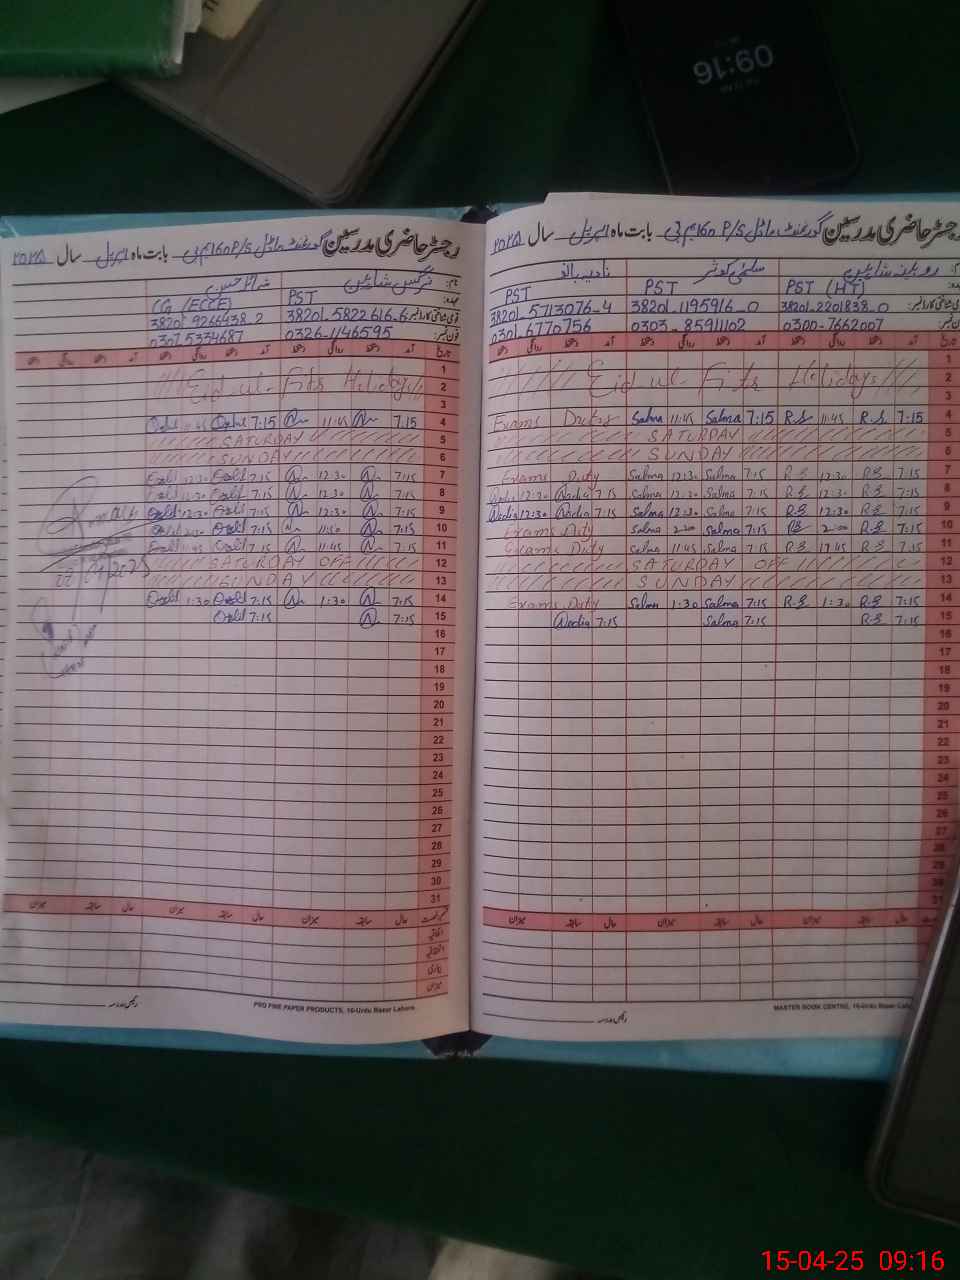 09:16
رجسٹر حاضری مدرسین گورنمنٹ ماڈل P/S 160 بابت ماہ اپریل سال ۲۰۲۵
روبینہ شاہین سلمیٰ کوثر نادیہ
PST (HT) PST PST
38201-2201838-0 38201-1195916-0 38201-5713076-4
0300-7662007 0303-8591102 0301-6770756
تاریخ آمد دستخط روانگی دستخط آمد دستخط روانگی دستخط آمد دستخط روانگی دستخط
1
2 Eid ul-Fitr Holidays
3
4 7:15 R.S 11:45 R.S 7:15 Salma 11:45 Salma Exams Duty
5 SATURDAY
6 SUNDAY
7 7:15 R.S 12:30 R.S 7:15 Salma 12:30 Salma Exams Duty
8 7:15 R.S 12:30 R.S 7:15 Salma 12:30 Salma 7:15 Nadia 12:30 Nadia
9 7:15 R.S 12:30 R.S 7:15 Salma 12:30 Salma 7:15 Nadia 12:30 Nadia
10 7:15 R.S 2:00 R.S 7:15 Salma 2:00 Salma Exams Duty
11 7:15 R.S 11:45 R.S 7:15 Salma 11:45 Salma Exams Duty
12 SATURDAY OFF
13 SUNDAY
14 7:15 R.S 1:30 R.S 7:15 Salma 1:30 Salma Exams Duty
15 7:15 R.S 7:15 Salma 7:15 Nadia
16
17
18
19
20
21
22
23
24
25
26
27
28
29
30
31
حال سابقہ میزان حال سابقہ میزان حال سابقہ میزان
رئیس مدرسہ
MASTER BOOK CENTRE, 16-Urdu Bazar Lahore
رجسٹر حاضری مدرسین گورنمنٹ ماڈل P/S 160 بابت ماہ اپریل سال ۲۰۲۵
نام: نرگس شاہین
عہدہ: PST CG (ECCE)
قومی شناختی کارڈ نمبر: 38201-5822616-6 38201-9266438-2
فون نمبر: 0326-1146595 0307-5334687
تاریخ آمد دستخط روانگی دستخط آمد دستخط روانگی دستخط آمد دستخط روانگی دستخط
1
2 Eid ul-Fitr Holidays
3
4 7:15 11:45 7:15 11:45
5 SATURDAY
6 SUNDAY
7 7:15 12:30 7:15 12:30
8 7:15 12:30 7:15 12:30
9 7:15 12:30 7:15 12:30
10 7:15 7:15
11 7:15 11:45 7:15 11:45
12 SATURDAY OFF
13 SUNDAY
14 7:15 1:30 7:15 1:30
15 7:15 7:15
16
17
18
19
20
21
22
23
24
25
26
27
28
29
30
31
حال سابقہ میزان حال سابقہ میزان حال سابقہ میزان
اتفاقیہ
استحقاقیہ
بیماری
میزان
رئیس مدرسہ
PRO FINE PAPER PRODUCTS, 16-Urdu Bazar Lahore
15-04-25 09:16